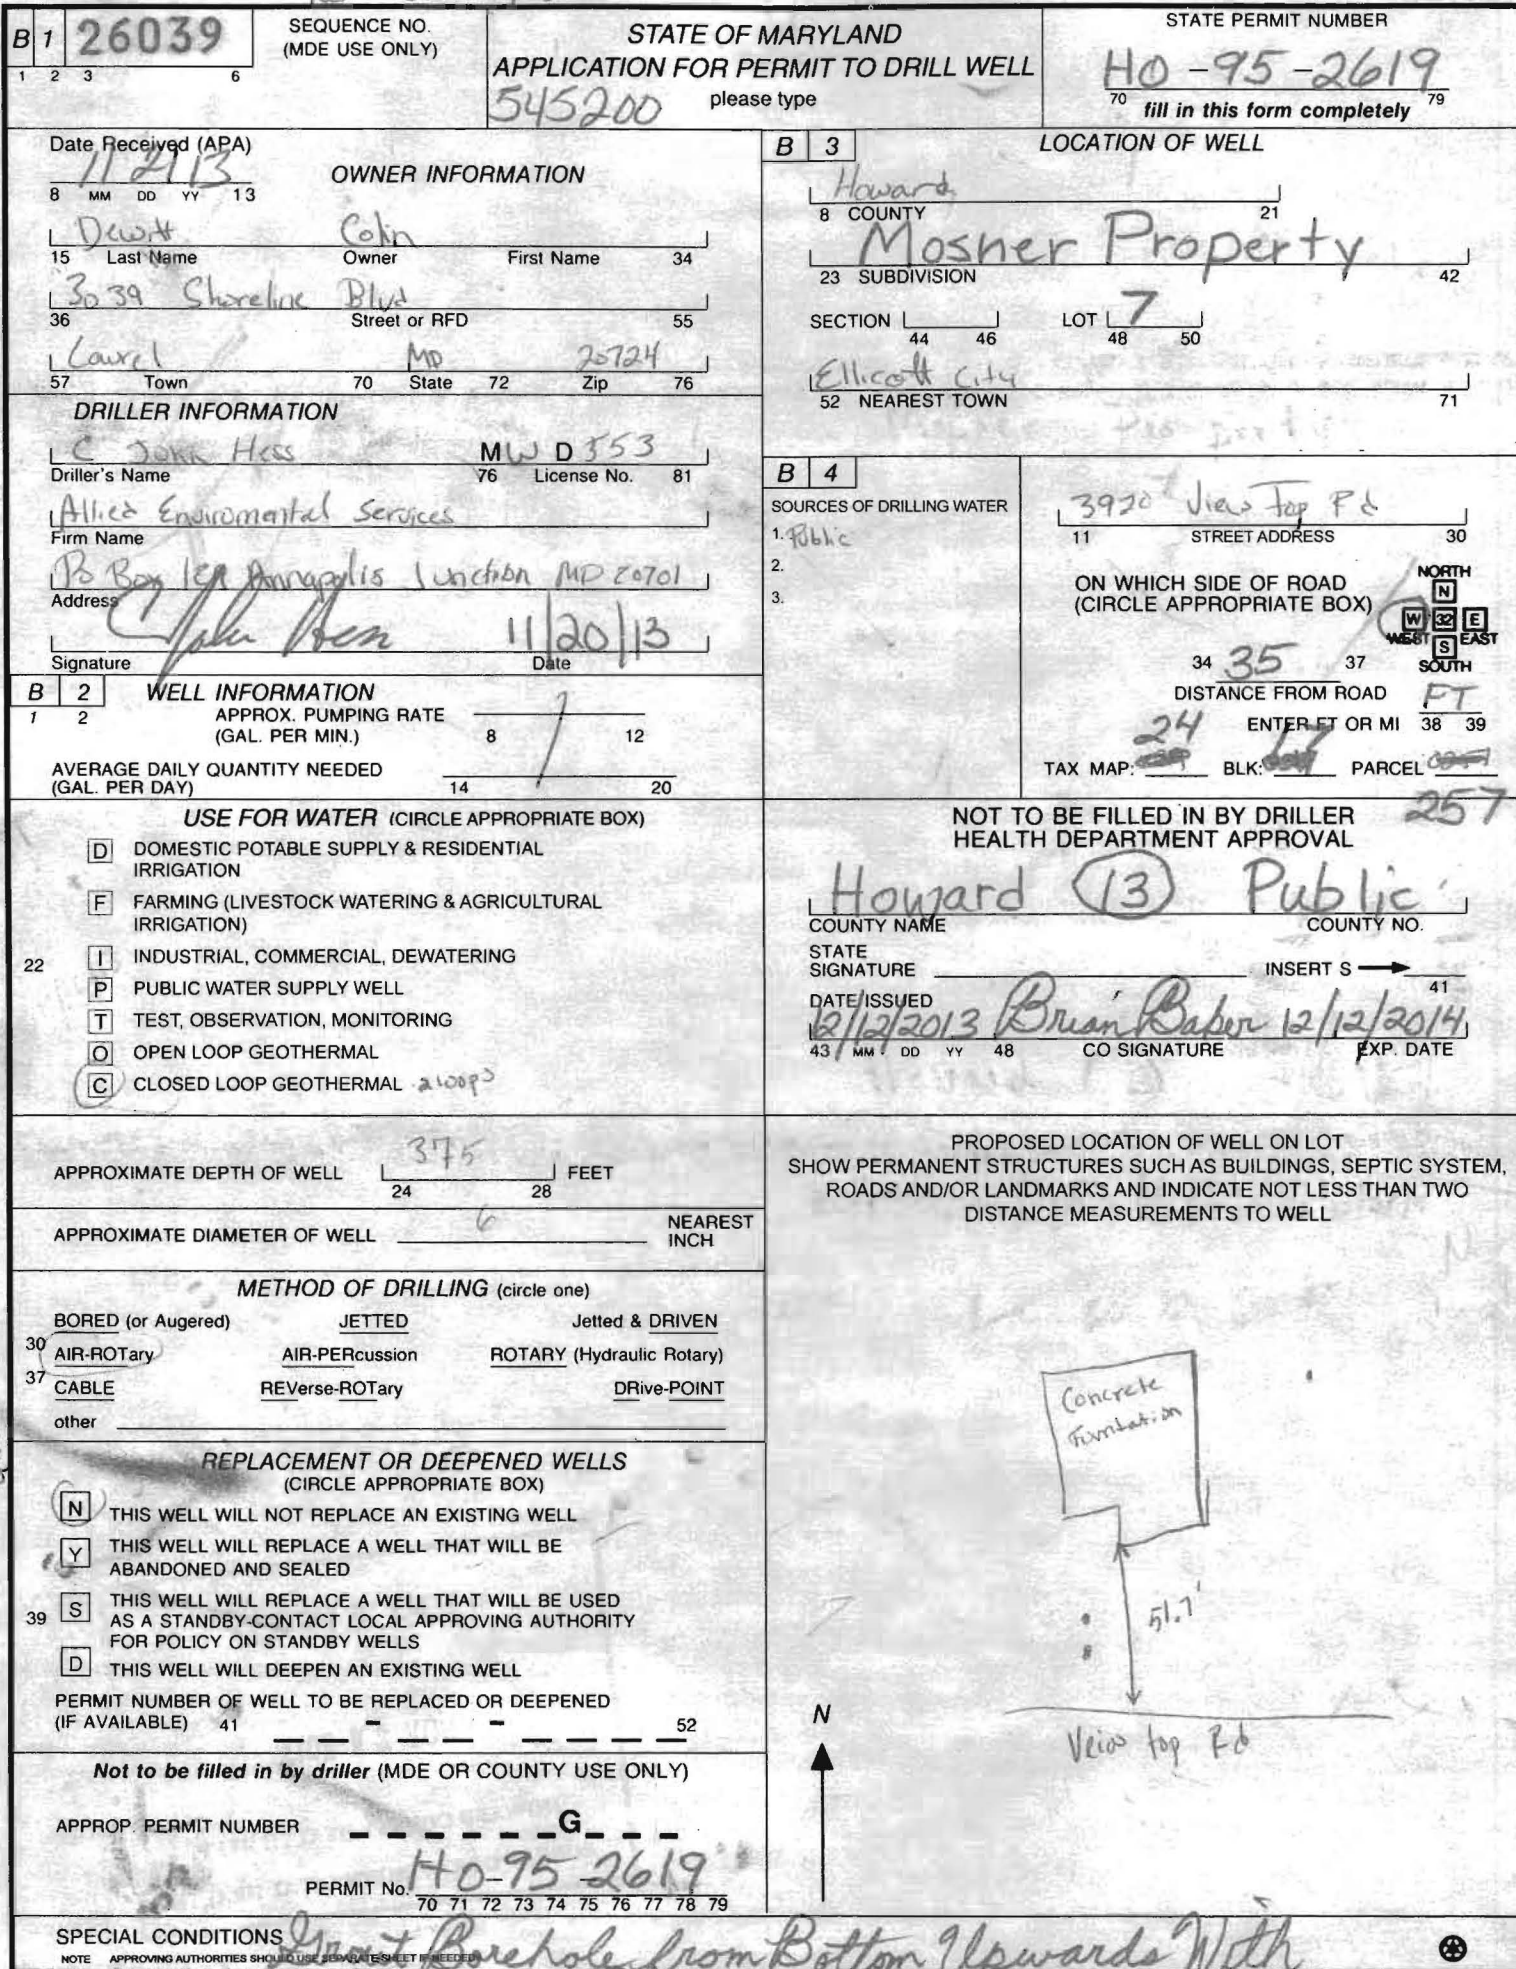 B 1 26039
1 2 3 6
SEQUENCE NO.
(MDE USE ONLY)
STATE OF MARYLAND
APPLICATION FOR PERMIT TO DRILL WELL
545200 please type
STATE PERMIT NUMBER
HO-95-2619
70 fill in this form completely 79
Date Received (APA)
8 MM DD YY 13
OWNER INFORMATION
Dewitt Colin
15 Last Name Owner First Name 34
3039 Shoreline Blvd
36 Street or RFD 55
Laurel MD 20724
57 Town 70 State 72 Zip 76
DRILLER INFORMATION
C John Hess MW D 553
Driller's Name 76 License No. 81
Allied Enviromental Services
Firm Name
Po Box Annapolis Junction MD 20701
Address
John Hess 11/20/13
Signature Date
B 2 WELL INFORMATION
1 2
APPROX. PUMPING RATE
(GAL. PER MIN.) 8 12
AVERAGE DAILY QUANTITY NEEDED
(GAL. PER DAY) 14 20
USE FOR WATER (CIRCLE APPROPRIATE BOX)
D DOMESTIC POTABLE SUPPLY & RESIDENTIAL
IRRIGATION
F FARMING (LIVESTOCK WATERING & AGRICULTURAL
IRRIGATION)
22 I INDUSTRIAL, COMMERCIAL, DEWATERING
P PUBLIC WATER SUPPLY WELL
T TEST, OBSERVATION, MONITORING
O OPEN LOOP GEOTHERMAL
C CLOSED LOOP GEOTHERMAL 2 loops
APPROXIMATE DEPTH OF WELL 375 FEET
24 28
APPROXIMATE DIAMETER OF WELL 6 NEAREST
INCH
METHOD OF DRILLING (circle one)
BORED (or Augered) JETTED Jetted & DRIVEN
30 AIR-ROTary AIR-PERcussion ROTARY (Hydraulic Rotary)
37 CABLE REVerse-ROTary DRive-POINT
other
REPLACEMENT OR DEEPENED WELLS
(CIRCLE APPROPRIATE BOX)
N THIS WELL WILL NOT REPLACE AN EXISTING WELL
Y THIS WELL WILL REPLACE A WELL THAT WILL BE
ABANDONED AND SEALED
39 S THIS WELL WILL REPLACE A WELL THAT WILL BE USED
AS A STANDBY-CONTACT LOCAL APPROVING AUTHORITY
FOR POLICY ON STANDBY WELLS
D THIS WELL WILL DEEPEN AN EXISTING WELL
PERMIT NUMBER OF WELL TO BE REPLACED OR DEEPENED
(IF AVAILABLE) 41 - - 52
Not to be filled in by driller (MDE OR COUNTY USE ONLY)
APPROP. PERMIT NUMBER G
PERMIT No. HO-95-2619
70 71 72 73 74 75 76 77 78 79
B 3 LOCATION OF WELL
Howard
8 COUNTY 21
Mosner Property
23 SUBDIVISION 42
SECTION LOT 7
44 46 48 50
Ellicott City
52 NEAREST TOWN 71
B 4
SOURCES OF DRILLING WATER
1. Public
2.
3.
3920 View Top Rd
11 STREET ADDRESS 30
ON WHICH SIDE OF ROAD
(CIRCLE APPROPRIATE BOX)
NORTH
N
W 32 E
WEST EAST
S
SOUTH
34 35 37
DISTANCE FROM ROAD FT
ENTER FT OR MI 38 39
24 17
TAX MAP: BLK: PARCEL
257
NOT TO BE FILLED IN BY DRILLER
HEALTH DEPARTMENT APPROVAL
Howard 13 Public
COUNTY NAME COUNTY NO.
STATE
SIGNATURE INSERT S
41
DATE ISSUED
12/12/2013 Brian Baker 12/12/2014
43 MM DD YY 48 CO SIGNATURE EXP. DATE
PROPOSED LOCATION OF WELL ON LOT
SHOW PERMANENT STRUCTURES SUCH AS BUILDINGS, SEPTIC SYSTEM,
ROADS AND/OR LANDMARKS AND INDICATE NOT LESS THAN TWO
DISTANCE MEASUREMENTS TO WELL
Concrete
Foundation
51.7'
Veiw top Rd
N
SPECIAL CONDITIONS Grout Borehole from Bottom Upwards With
NOTE APPROVING AUTHORITIES SHOULD USE SEPARATE SHEET IF NEEDED